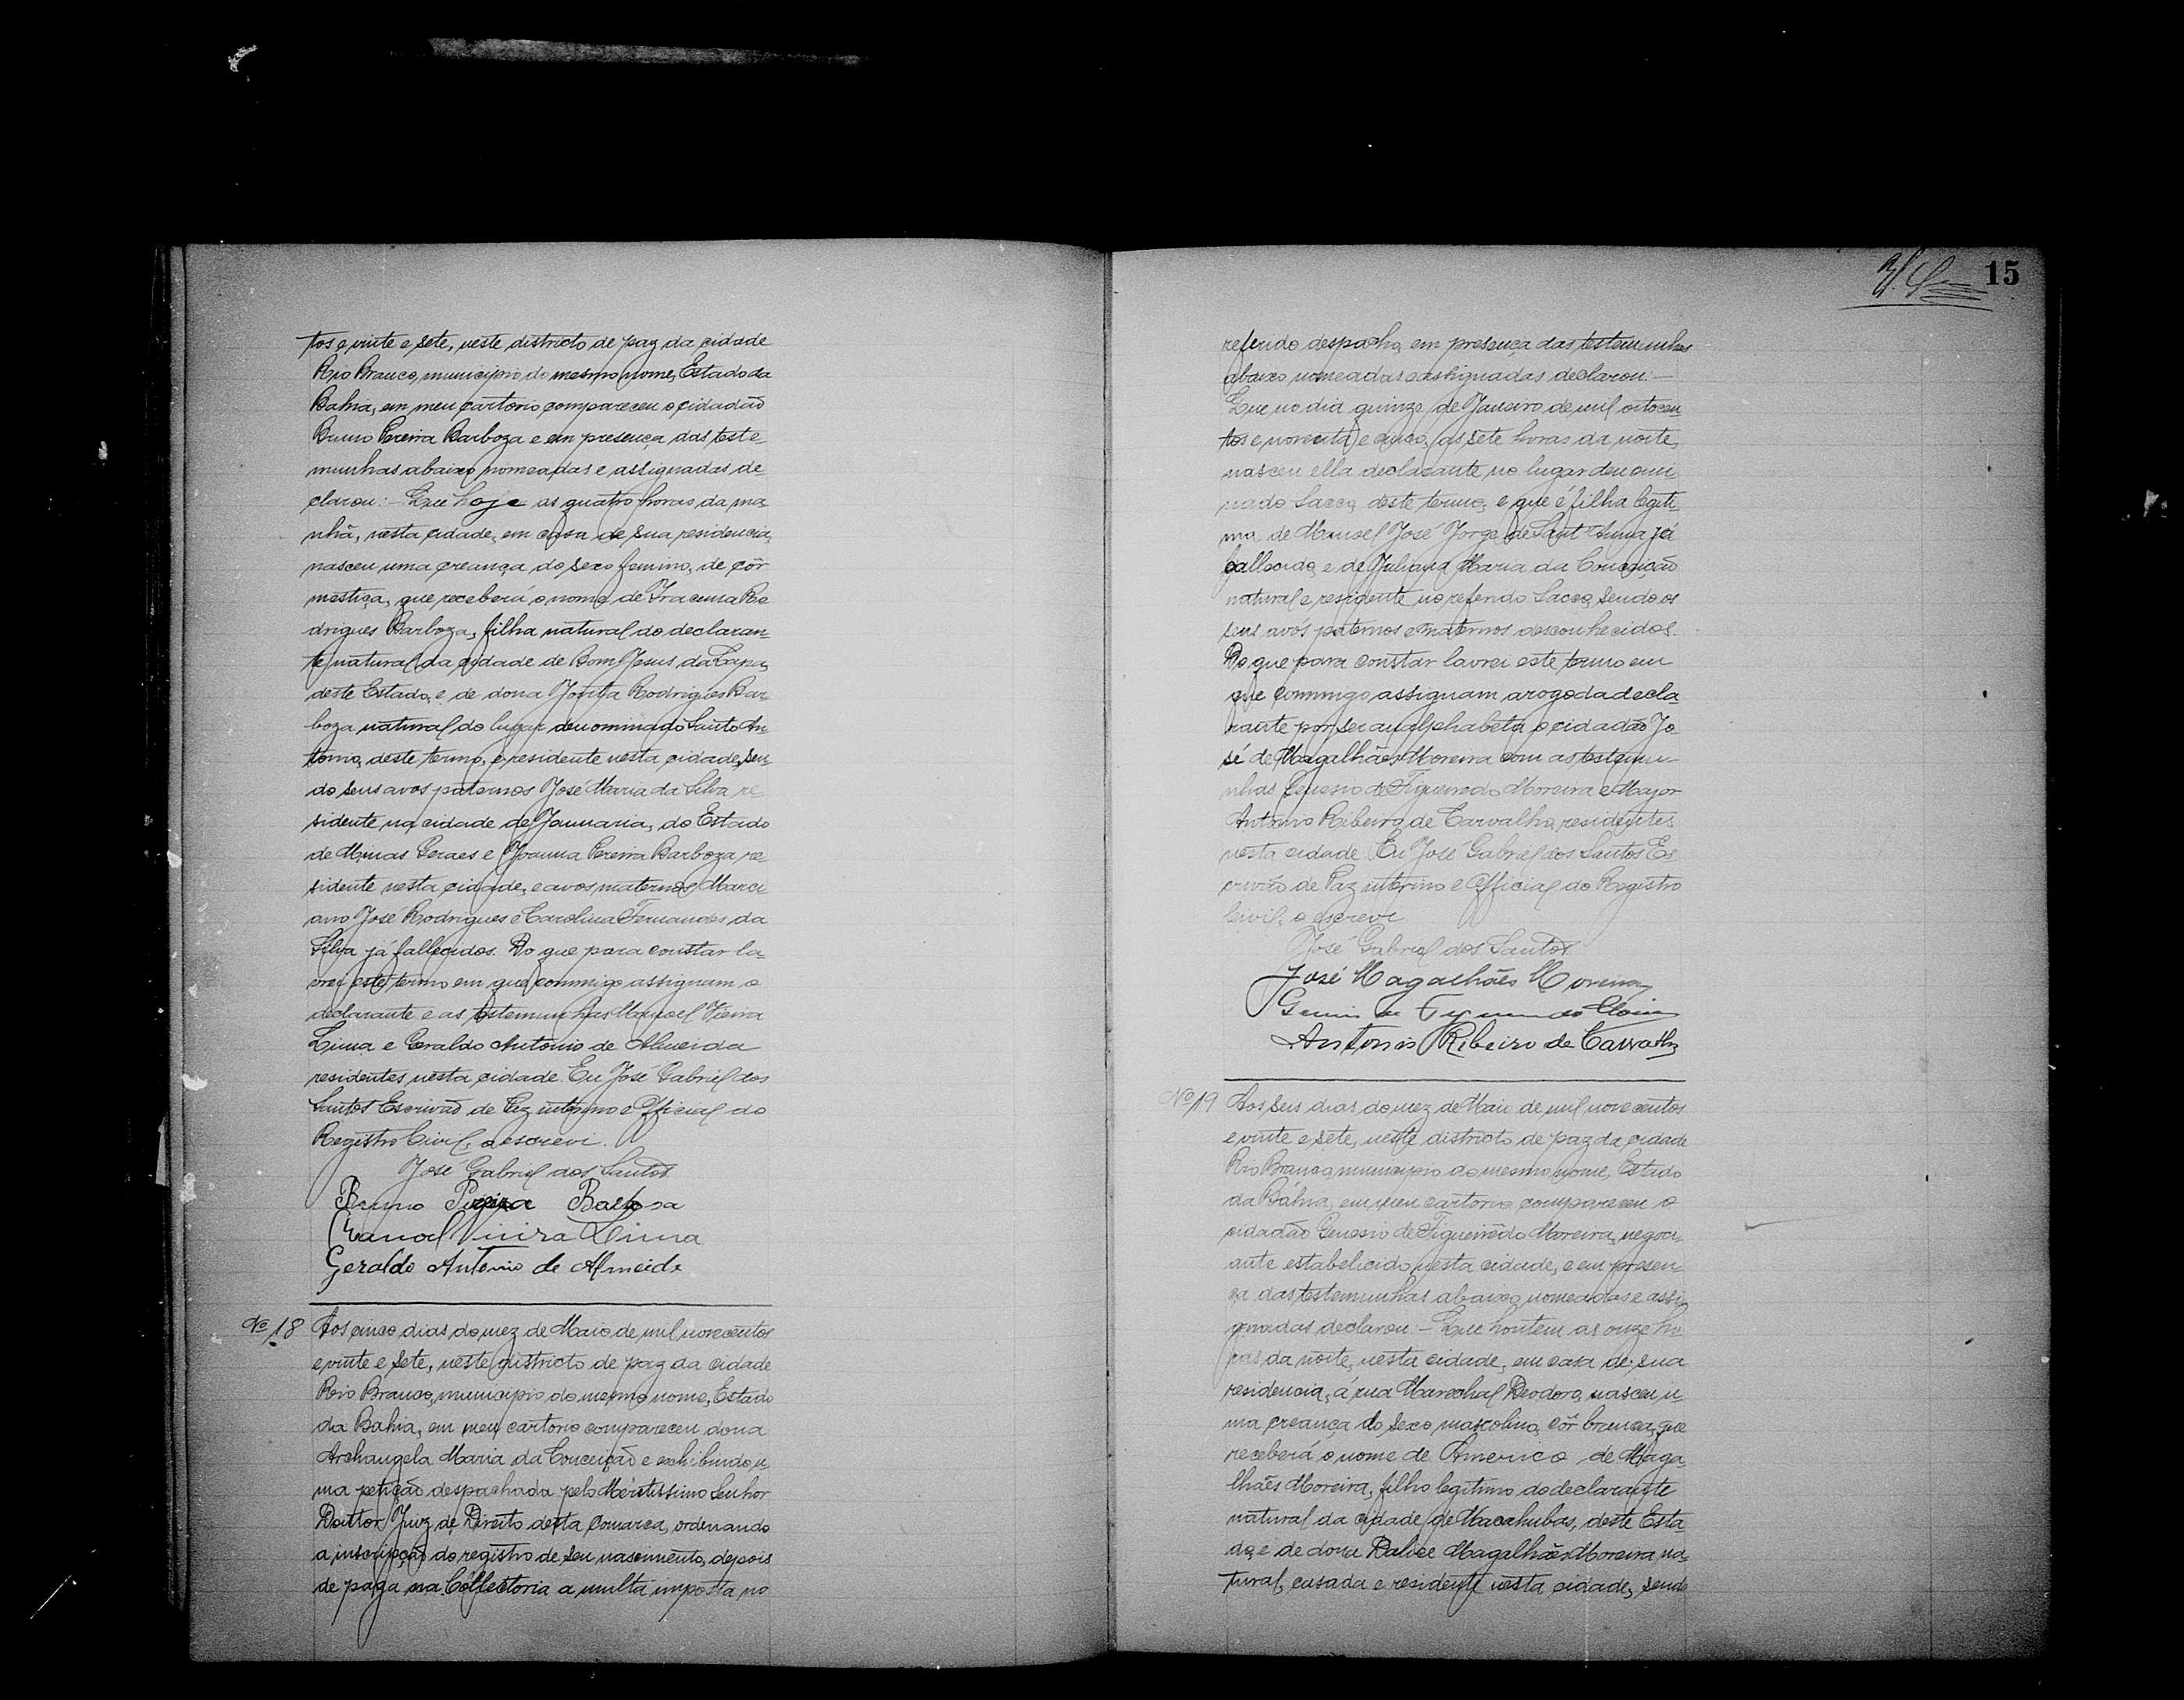 tos e vinte e sete, neste districto de paz da cidade
Rio Branco, municipio do mesmo nome, Estado da
Bahia, em meu cartorio compareceu o cidadão
Bruno Pereira Barboza e em presença das teste-
munhas abaixo nomeadas e assignadas de-
clarou: - Que hoje as quatro horas da ma-
nhã, nesta cidade, em casa de sua residencia,
nasceu uma creança do sexo femino, de côr
mestiça, que receberá o nome de Iracema Ro
drigues Barboza, filha natural do declaran-
te natural da cidade de Bom Jesus da Lapa,
deste Estado, e de dona Rodrigues Bar-
boza natural do lugar denominado Santo An-
tonio, deste termo, e residente nesta cidade, sen-
do seus avos paternos José Maria da Silva re-
sidente na cidade de Januaria, do Estado
de Minas Geraes e Joanna Pereira Barboza re-
sidente nesta cidade, e avos maternos Marci
ano José Rodrigues e Carolina Fernandes da
Silva já fallecidos. Do que para constar la-
vrei este termo em que commigo assignam o
declarante e as testemunhas Manoel Vieira
Lima e Geraldo Antonio de Almeida
residentes nesta cidade. Eu José Gabriel dos
Santos Escrivão de Paz interino e Official do
Registro Civil, o escrevi.
José Gabriel dos Santos
Bruno Pereira Barbosa
Manoel Vieira Lima
Geraldo Antonio de Almeida
Nº 18 Aos cinco dias do mez de Maio de mil novecentos
e vinte e sete, neste districto de paz da cidade
Rio Branco, municipio do mesmo nome, Estado
da Bahia, em meu cartorio compareceu dona
Archangela Maria da Conceição e exhibindo u-
ma petição despachada pelo Meritissimo Senhor
Doutor Juiz de Direito desta Comarca, ordenando
a inscripção do registro de seu nascimento, depois
de paga na Collectoria a multa imposta no
15
referido despacho, em presença das testemunhas
abaixo nomeadas e assignadas declarou: -
Que no dia quinze de Janeiro de mil oitocen-
tos e noventa e cinco, as sete horas da noite,
nasceu ella declarante no lugar denomi-
nado Sacco, deste termo, e que é filha legiti-
ma de Manoel José Jorge de Sant'Anna já
fallecido, e de Juliana Maria da Conceição
natural e residente no referido Sacco, sendo os
seus avós paternos e maternos desconhecidos.
Do que para constar lavrei este termo em
que commigo assignam a rogo da decla
rante por ser analphabeta, o cidadão Jo
sé de Magalhães Moreira com as testemu-
nhas Genesio de Figueiredo Moreira e Major
Antonio Ribeiro de Carvalho, residentes
nesta cidade. Eu José Gabriel dos Santos Es
crivão de Paz interino e Official do Registro
Civil, o escrevi
José Gabriel dos Santos
José Magalhães Moreira
Antonio Ribeiro de Carvalho
Nº 19 Aos seis dias do mez de Maio de mil novecentos
e vinte e sete, neste districto de paz da cidade
Rio Branco, municipio do mesmo nome, Estado
da Bahia, em meu cartorio compareceu o
cidadão Genesio de Figueirêdo Moreira, negoci-
ante estabelecido nesta cidade, e em presen-
ça das testemunhas abaixo nomeadas e assi-
gnadas declarou: - Que hontem as onze ho
ras da noite, nesta cidade, em casa de sua
residencia, á rua Marechal Deodoro, nasceu u-
ma creança do sexo mascolino, côr branca, que
receberá o nome de Americo de Maga-
lhães Moreira, filho legitimo do declarante
natural da cidade de Macahubas, deste Esta
do, e de dona Dalice Magalhães Moreira, na-
tural, casada e residente nesta cidade, sendo